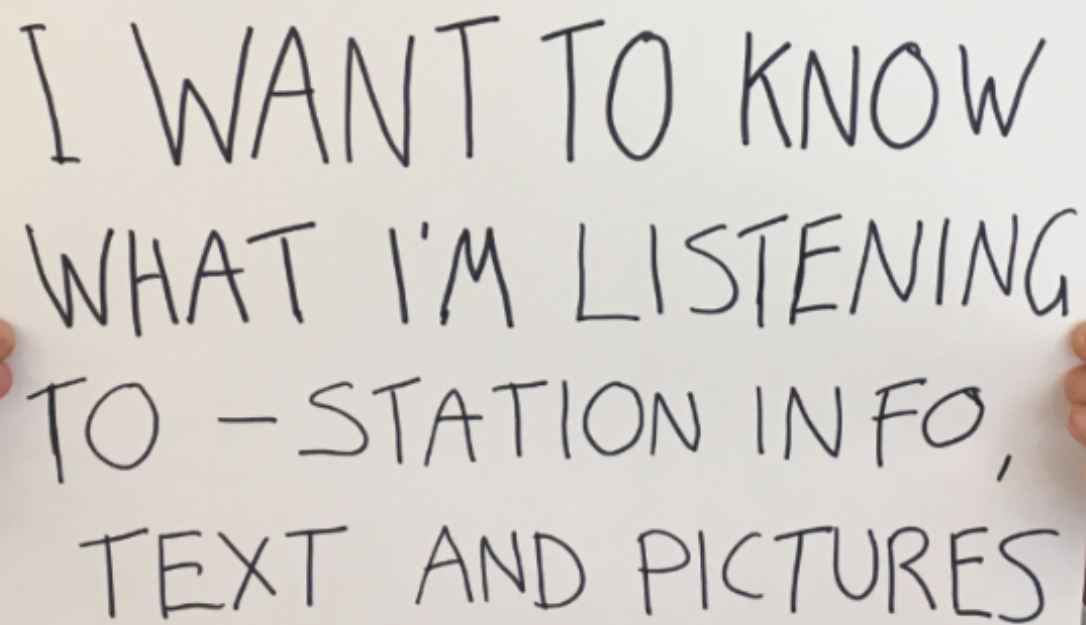 I WANT TO KNOW
WHAT I'M LISTENING
TO - STATION INFO,
TEXT AND PICTURES